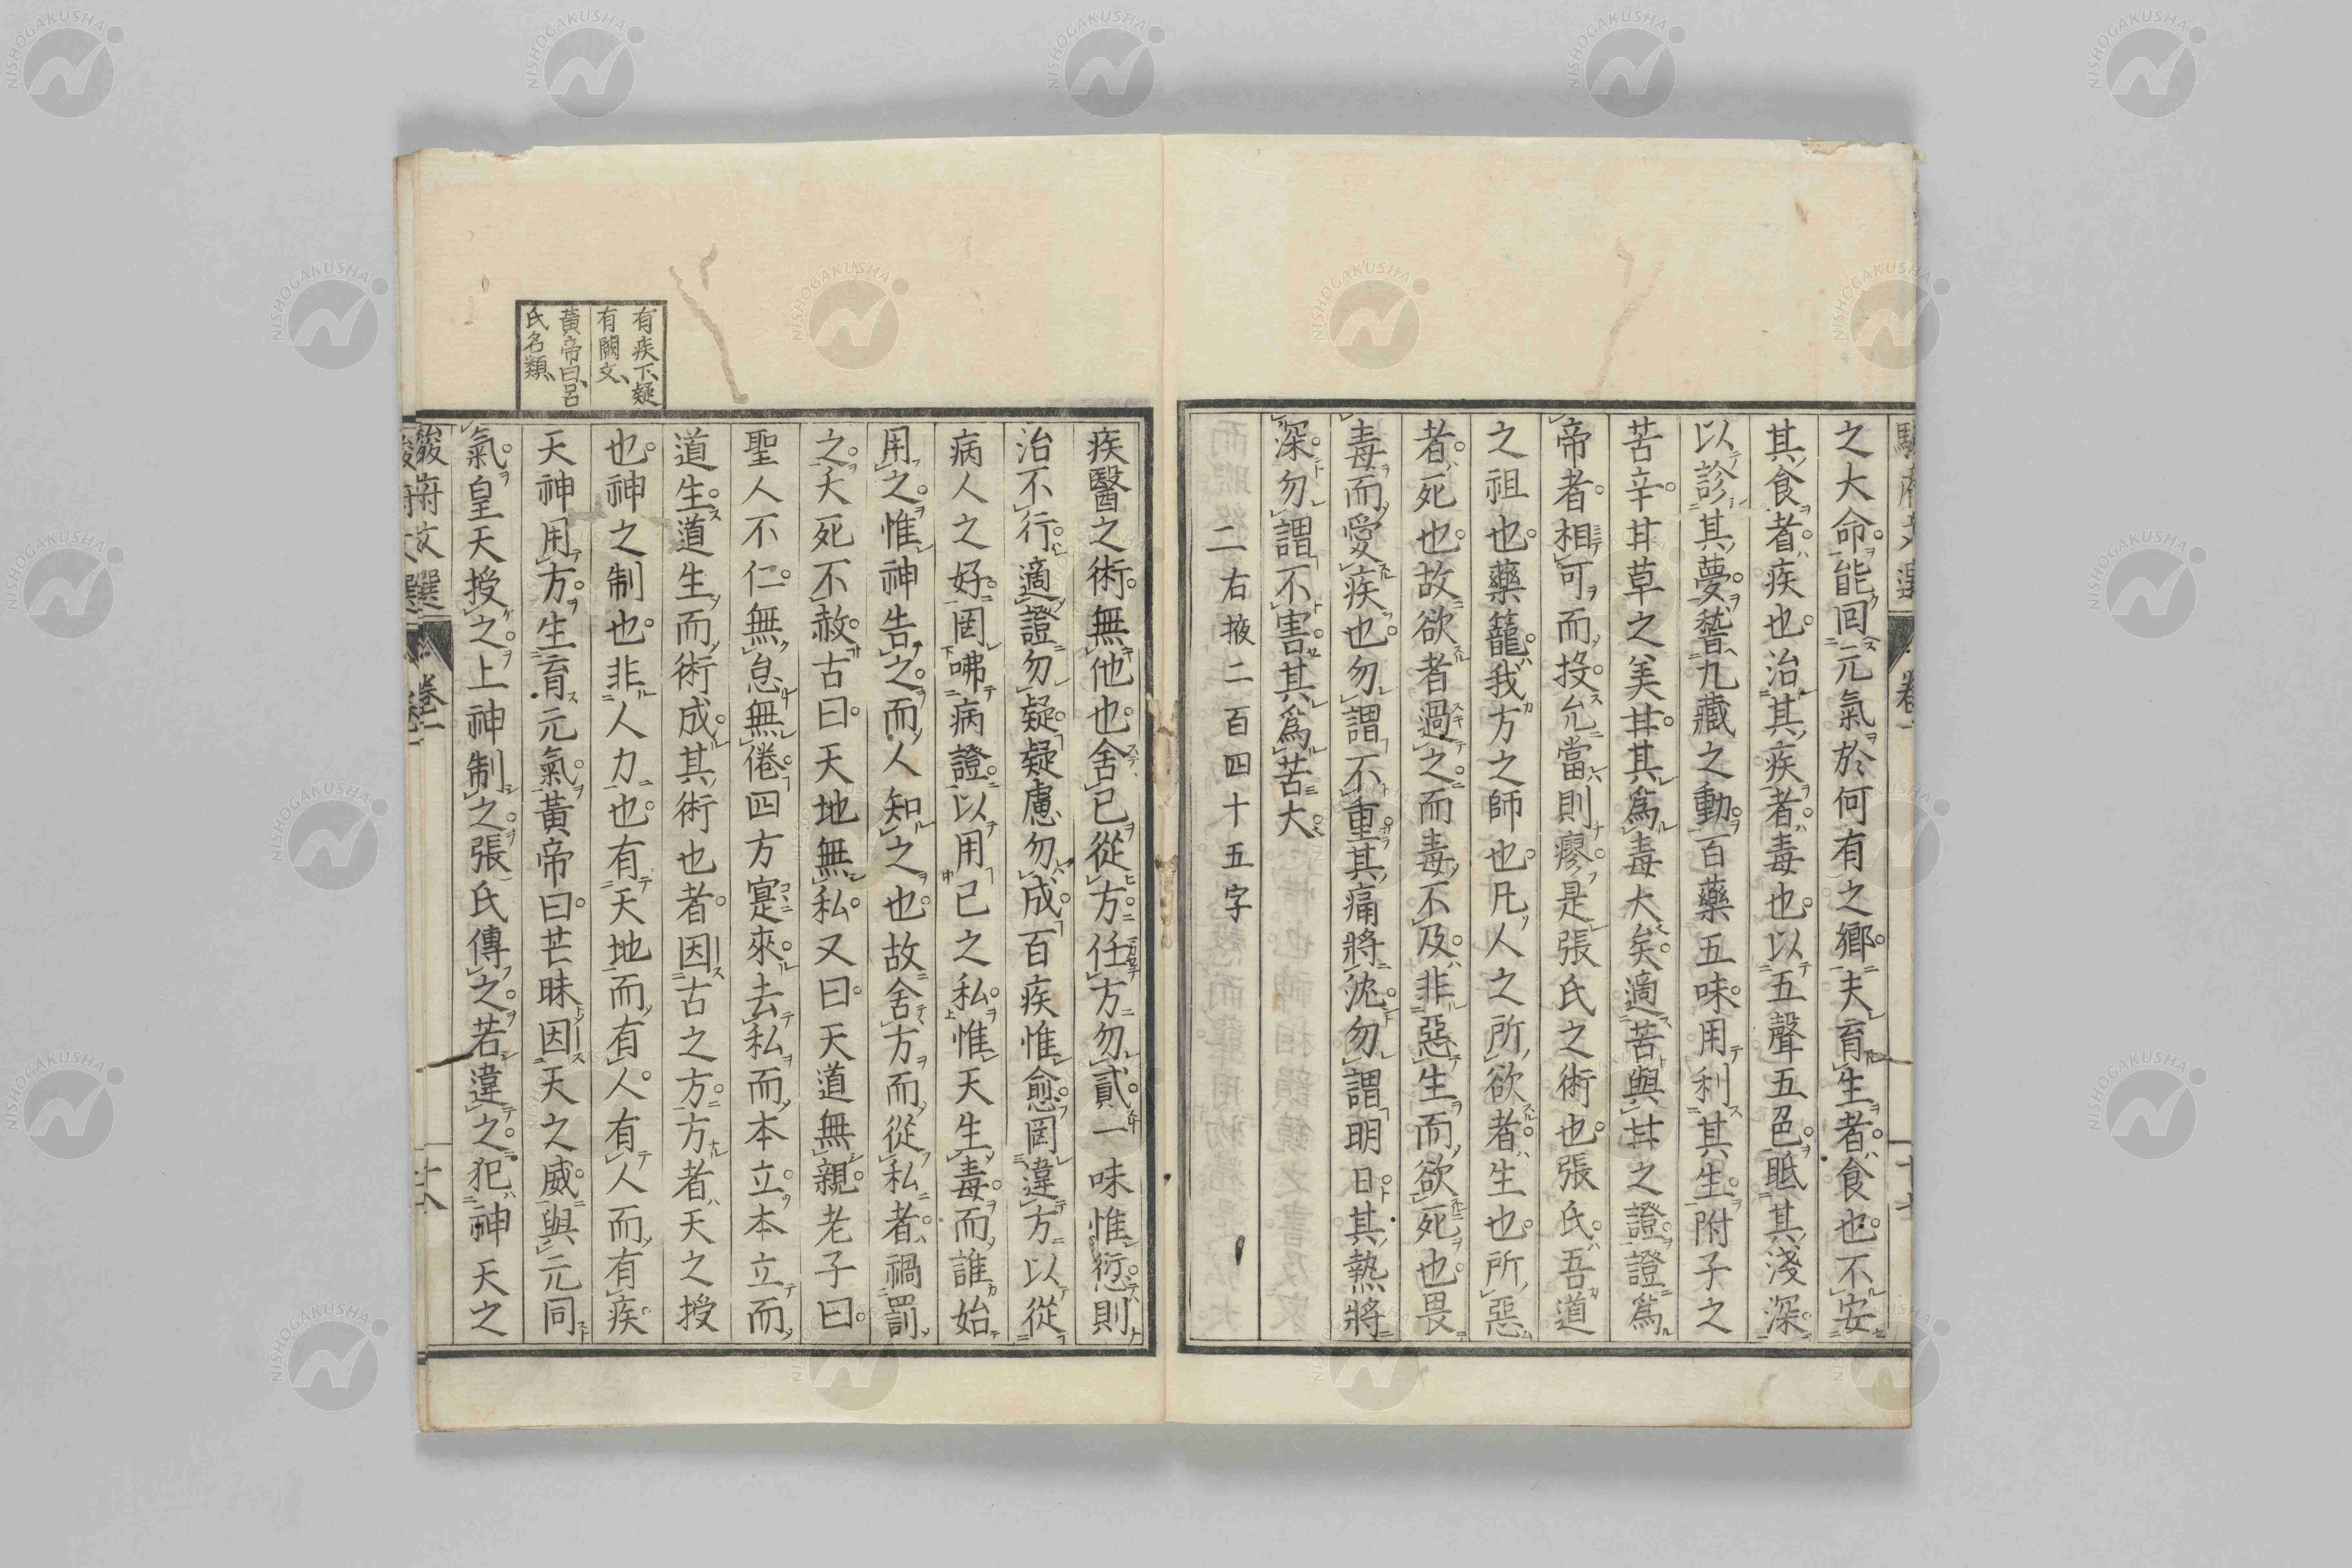 之大命能回元氣於何有之鄉夫育生者食也不安
其食者疾也治其疾者毒也以五聲五色眂其淺深
以診其夢䜟九藏之動百藥五味用利其生附子之
苦辛甘草之美甘其爲毒大矣適苦與甘之證證爲
帝者相可而投允當則瘳是張氏之術也張氏吾道
之祖也藥籠我方之師也凡人之所欲者生也所惡
者死也故欲者過之而毒不及非惡生而欲死也畏
毒而愛疾也勿謂不重其痛將沈勿謂明日其熱將
深勿謂不害其爲苦大
二右掖二百四十五字
有疾下疑
有闕文
黃帝曰呂
氏名類
疾醫之術無他也舍已從方任方勿貳一味惟愆則
治不行適證勿疑疑慮勿成百疾惟愈罔違方以從
病人之好罔咈病證以用已之私惟天生毒而誰始
用之惟神告之而人知之也故舍方而從私者禍罰
之夭死不赦古曰天地無私又曰天道無親老子曰
聖人不仁無怠無倦四方寔來去私而本立本立而
道生道生而術成其術也者因古之方方者天之授
也神之制也非人力也有天地而有人有人而有疾
天神用方生育元氣黃帝曰芒昧因天之威與元同
氣皇天授之上神制之張氏傳之若違之犯神天之
駿府文選 卷一 十八
NISHOGAKUSHA